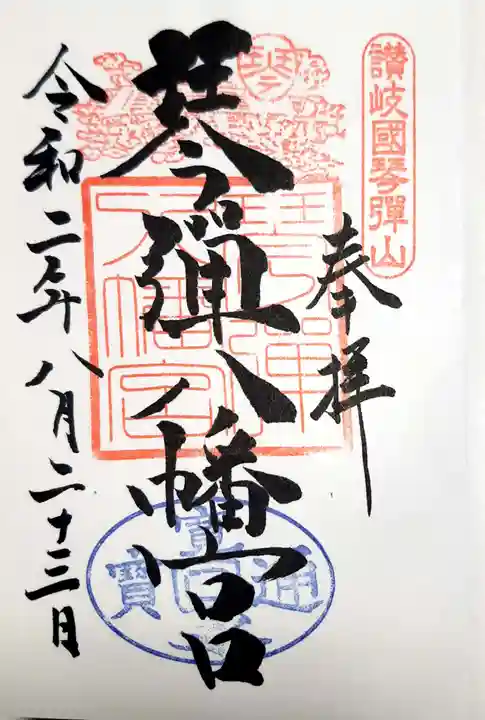 讃岐國琴彈山
奉拝
琴弾八幡宮
琴
琴彈
八幡宮
令和二年八月二十三日